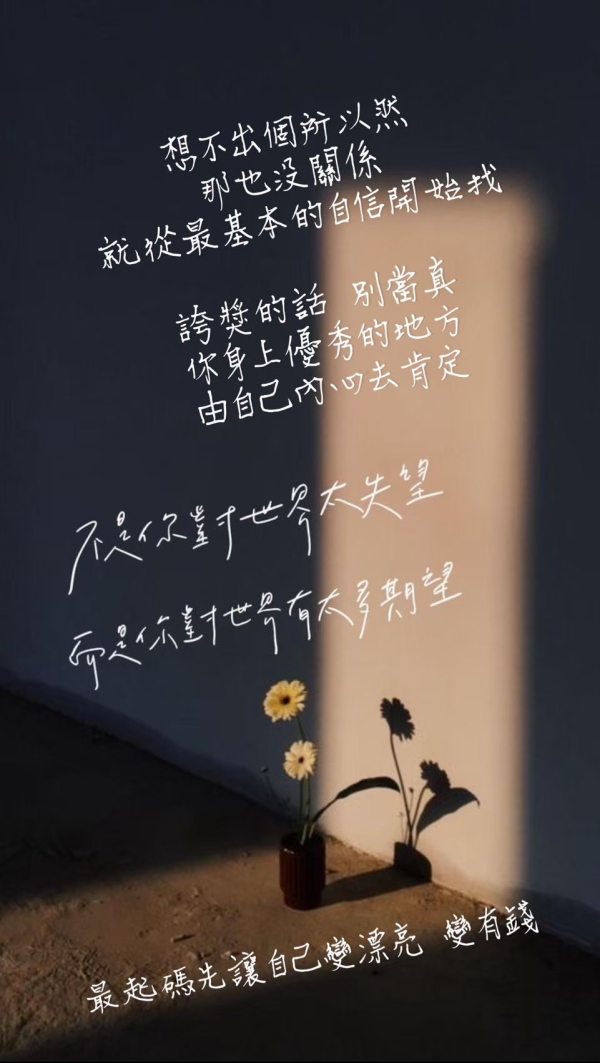 想不出個所以然
那也没關係
就從最基本的自信開始找
誇獎的話 別當真
你身上優秀的地方
由自己內心去肯定
不是你對世界太失望
而是你對世界有太多期望
最起碼先讓自己變漂亮 變有錢